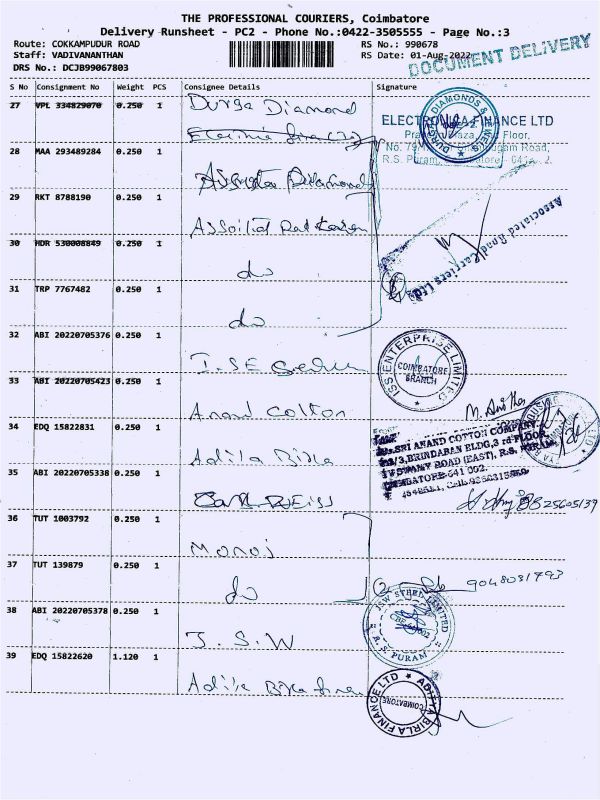 THE PROFESSIONAL COURIERS, Coimbatore
Delivery Runsheet - PC2 - Phone No.:0422-3505555 - Page No.:3
Route: COKKAMPUDUR ROAD RS No.: 990678
Staff: VADIVANANTHAN RS Date: 01-Aug-2022
DOCUMENT DELIVERY
DRS No.: DCJB99067803
S No Consignment No Weight PCS Consignee Details Signature
27 VPL 334829070 0.250 1 Durga Diamond
DURGA DIAMONDS &
ELECTRONICA FINANCE LTD
Floor,
No.
R.S. Puram,
28 MAA 293489284 0.250 1
Diamond
29 RKT 8788190 0.250 1
Associated Road Carriers Ltd
30 HDR 530008849 0.250 1 do
31 TRP 7767482 0.250 1 do
32 ABI 20220705376 0.250 1
ISS ENTERPRISE LIMITED
COIMBATORE
BRANCH
33 ABI 20220705423 0.250 1 Anand Cotton
34 EDQ 15822831 0.250 1 Aditya Birla
SRI ANAND COTTON COMPANY,
BRINDABAN BLDG, 3rd FLOOR,
SWAMY ROAD (EAST), R.S. PURAM,
641 002.
35 ABI 20220705338 0.250 1
25605139
36 TUT 1003792 0.250 1 Manoj
37 TUT 139879 0.250 1 do
9048031793
38 ABI 20220705378 0.250 1 J.S.W
JSW STEEL LIMITED
R.S. PURAM
39 EDQ 15822620 1.120 1 Aditya Birla
ADITYA BIRLA FINANCE LTD
COIMBATORE